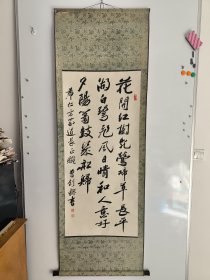 花開紅樹乱鶯啼草長平
湖白鷺飛風日晴和人意好
夕陽簫鼓幾船歸
書